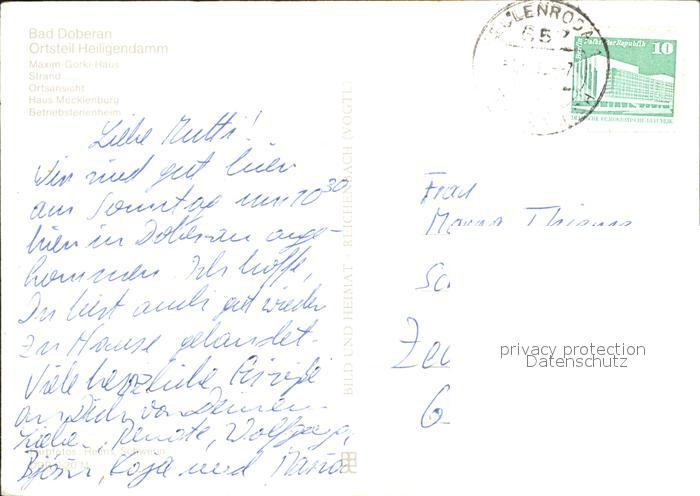 Bad Doberan
Ortsteil Heiligendamm
Maxim-Gorki-Haus
Strand
Ortsansicht
Haus Mecklenburg
Betriebsferienheim
Liebe Mutti!
Wir sind gut hier
am Sonntag um 10 30
hier in Doberan ange-
kommen. Ich hoffe,
Du bist auch gut wieder
zu Hause gelandet.
Viele herzliche Grüße
an Dich von Deinen
Lieben, Renate, Wolfgang,
Björn, Kaja und Maria
BILD UND HEIMAT · REICHENBACH (VOGTL)
ZEULENRODA 1
657
Palast der Republik
10
DEUTSCHE DEMOKRATISCHE REPUBLIK
Frau
privacy protection
Datenschutz